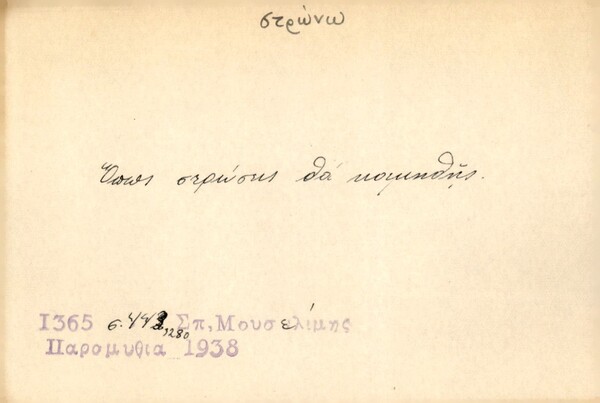 στρώνω
Ὅπως στρώσῃς θά κοιμηθῇς.
1365 σ. 443, 1280 Σπ, Μουσελίμης
Παραμυθια 1938